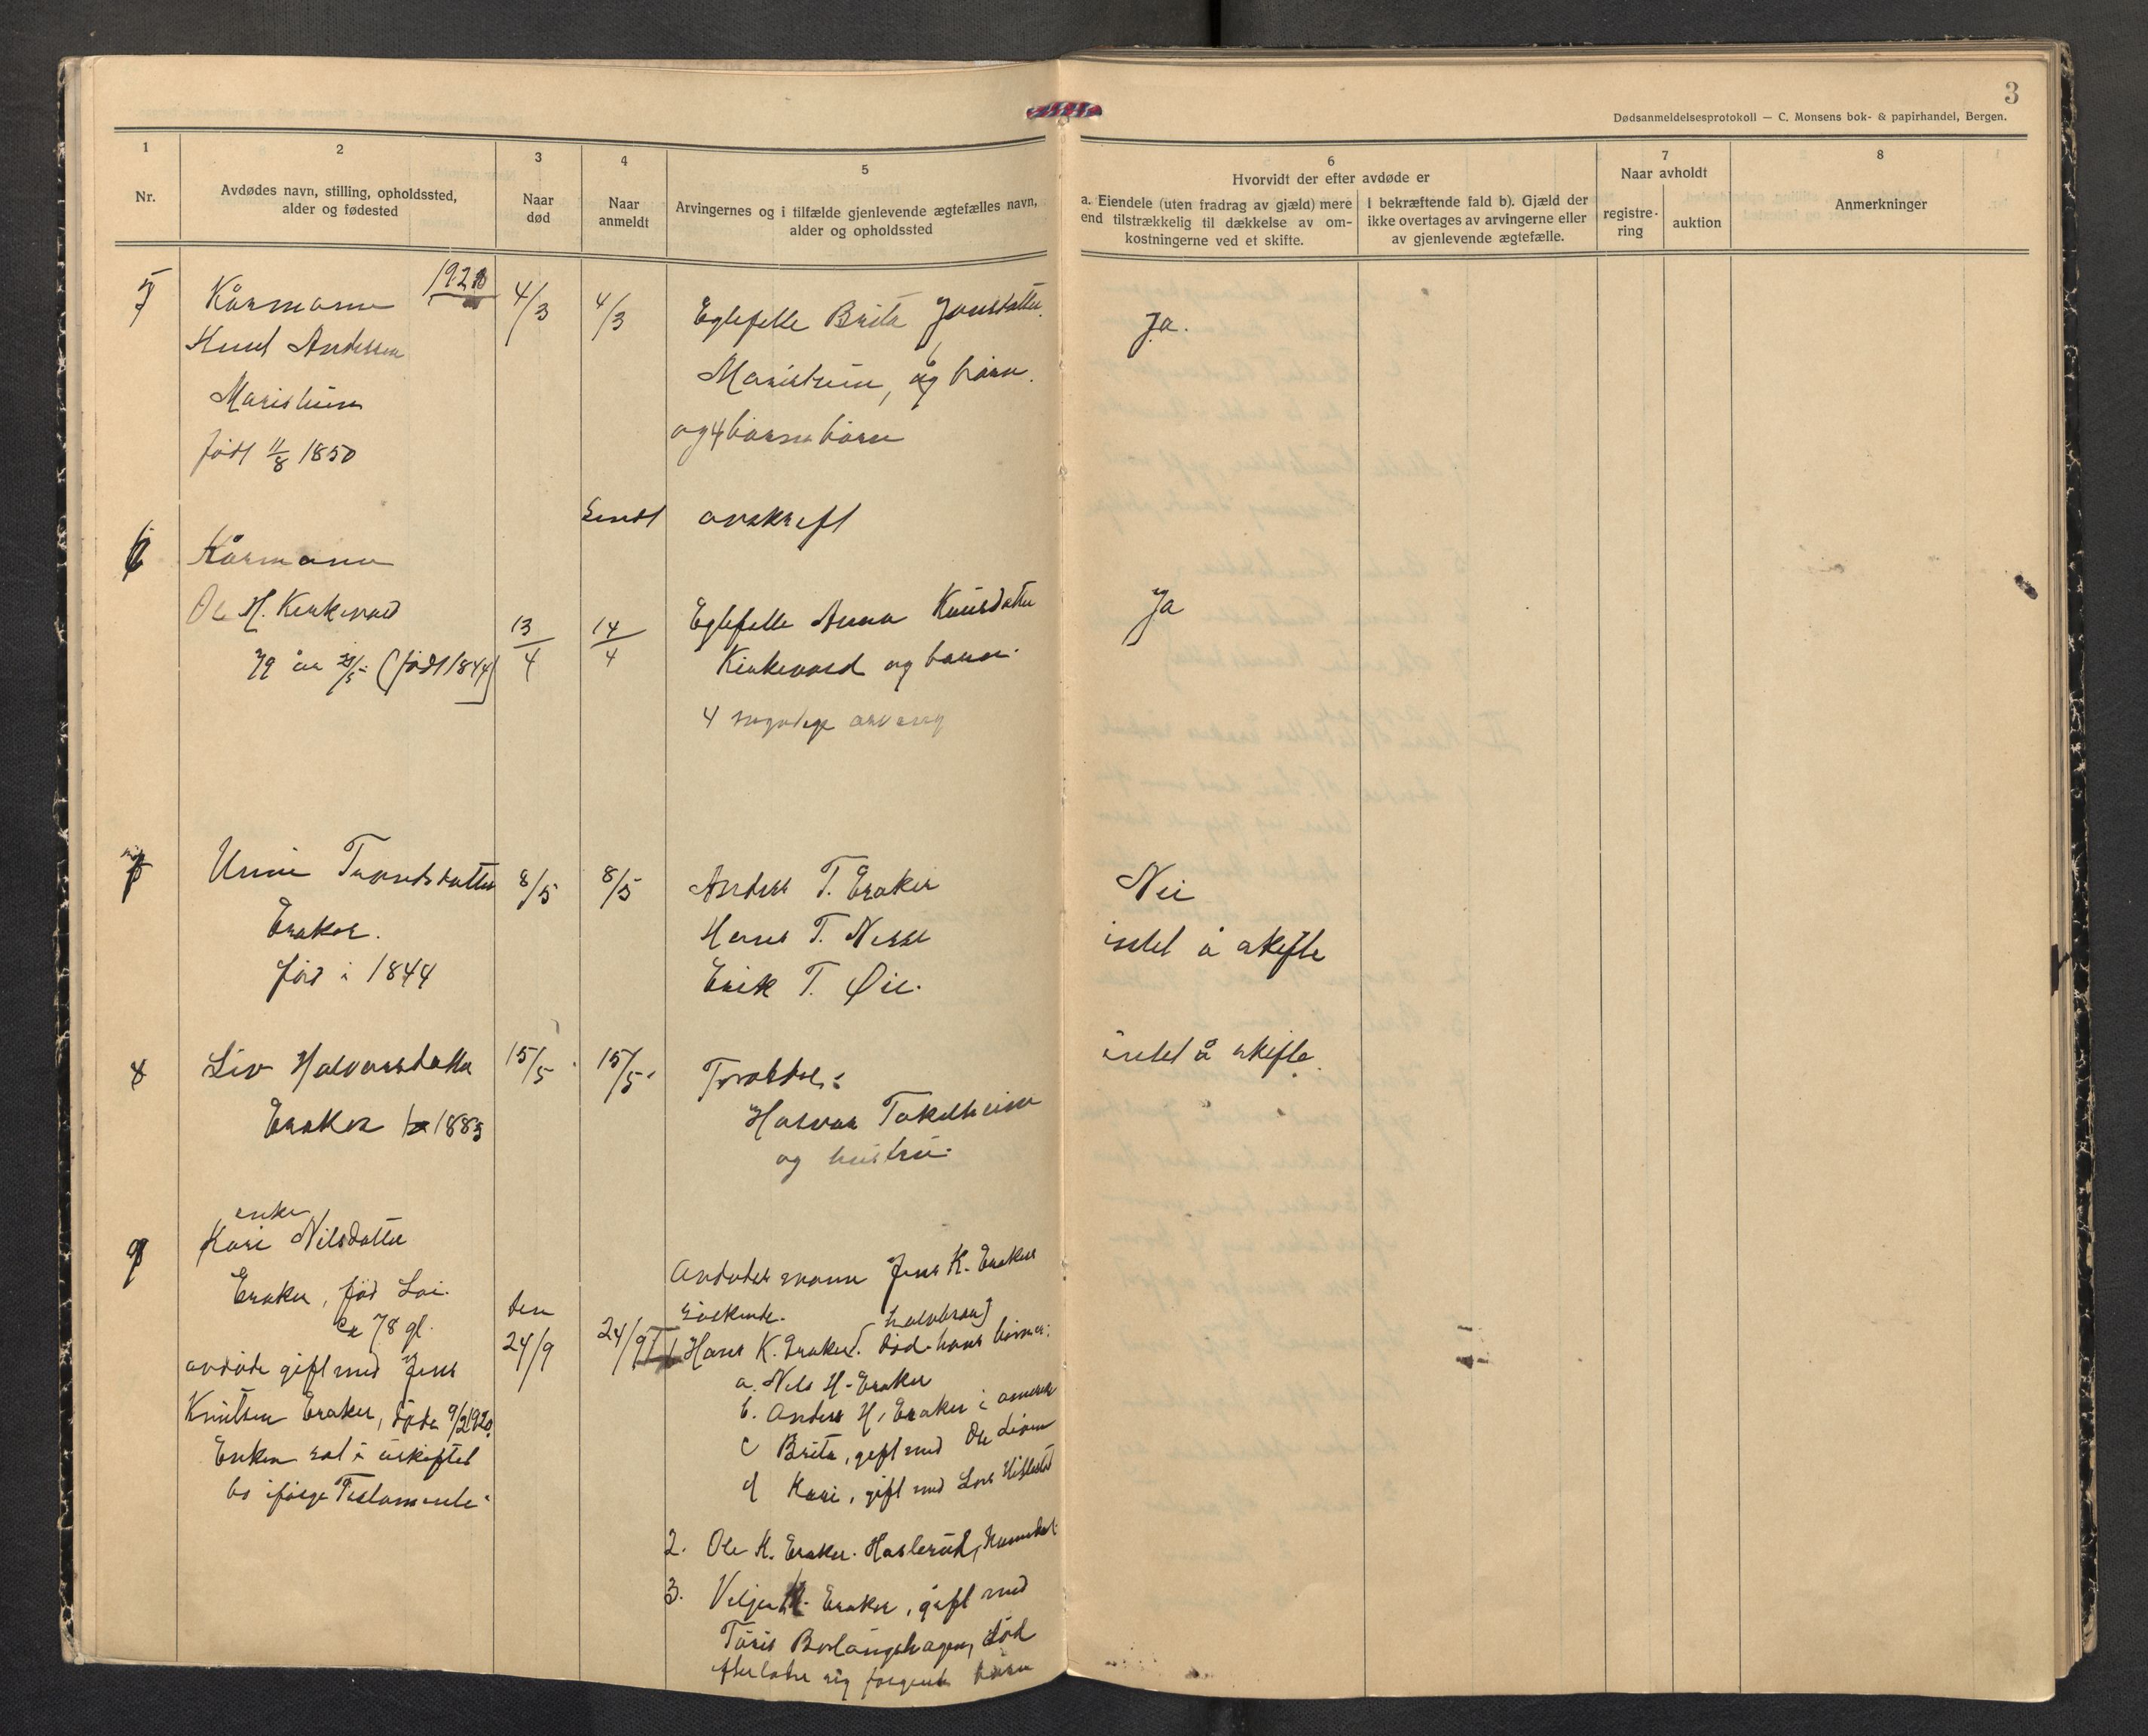 3
Dødsanmeldelsesprotokoll — C. Monsens bok- & papirhandel, Bergen.
1
Nr.
2
Avdødes navn, stilling, opholdssted,
alder og fødested
3
Naar
død
4
Naar
anmeldt
5
Arvingernes og i tilfælde gjenlevende ægtefælles navn,
alder og opholdssted
6
Hvorvidt der efter avdøde er
a. Eiendele (uten fradrag av gjæld) mere
end tilstrækkelig til dækkelse av om-
kostningerne ved et skifte.
I bekræftende fald b). Gjæld der
ikke overtages av arvingerne eller
av gjenlevende ægtefælle.
7
Naar avholdt
registre-
ring
auktion
8
Anmerkninger
5
Kårmann
Knut Andersen
Maristuen
født 11/8 1850
4/3
4/3
Egtefelle Brita Jonsdatter
Maristuen, 6 børn.
og 4 barnebørn
Ja.
Sendt avskrift
6
Kårmann
Ole H. Kirkevold
79 år (født 1844)
13/4
14/4
Egtefelle Anna Knutsdatter
Kirkevold og barn.
4 myndige
Ja
7
Unni Trondsdatter
Eraker.
fød i 1844
8/5
8/5
Anders T. Eraker
Hans T. Nesse
Erik T. Øie.
Nei
intet å skifte
8
Liv Halvorsdatter
Eraker 1883
15/5
15/5
Foreldre:
Halvor
og hustru.
intet å skifte.
9
enke
Kari Nilsdatter
Eraker, fød Loi.
ca 78 gl.
avdøde gift med Jens
Knutsen Eraker, døde 9/2 1920.
Enken sat i uskiftet
bo ifølge Testamente.
den
24/9
24/9
Avdødes mann Jens K. Erakers
søskende.
halvbror)
1 Hans K. Eraker. død. hans børn:
a. Nils H. Eraker
b. Anders H. Eraker i
c Brita, gift med Ole
d Kari, gift med Lars
2. Ole K. Eraker. Haslerud,
3. K. Eraker, gift med
Turis død
efterlater sig følgende børn